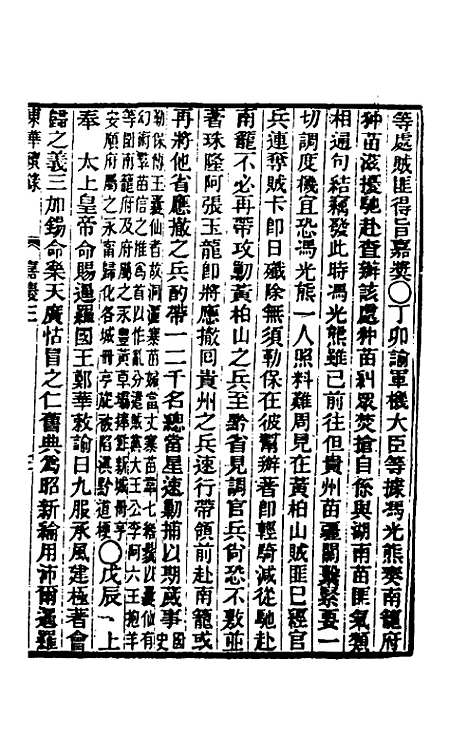 等處賊匪得旨嘉獎〇丁卯諭軍機大臣等據馮光熊奏南籠府
狆苗滋擾馳赴查辦該處狆苗糾眾焚搶自係與湖南苗匪氣類
相通句結竊發此時馮光熊雖已前往但貴州苗疆關繫緊要一
切調度機宜恐馮光熊一人照料難周見在黃柏山賊匪已經官
兵連奪賊卡卽日殲除無須勒保在彼幫辦著卽輕騎減從馳赴
南籠不必再帶攻勦黃柏山之兵至黔省見調官兵尙恐不敷並
著珠隆阿張玉龍卽將應撤回貴州之兵速行帶領前赴南籠或
再將他省應撤之兵酌帶一二千名總當星速勦捕以期蕆事
奉 太上皇帝命賜暹羅國王鄭華敕諭曰九服承風建極著會
歸之義三加錫命樂天廣怙冒之仁舊典爲昭新綸用沛爾暹羅
東華續錄 嘉慶三